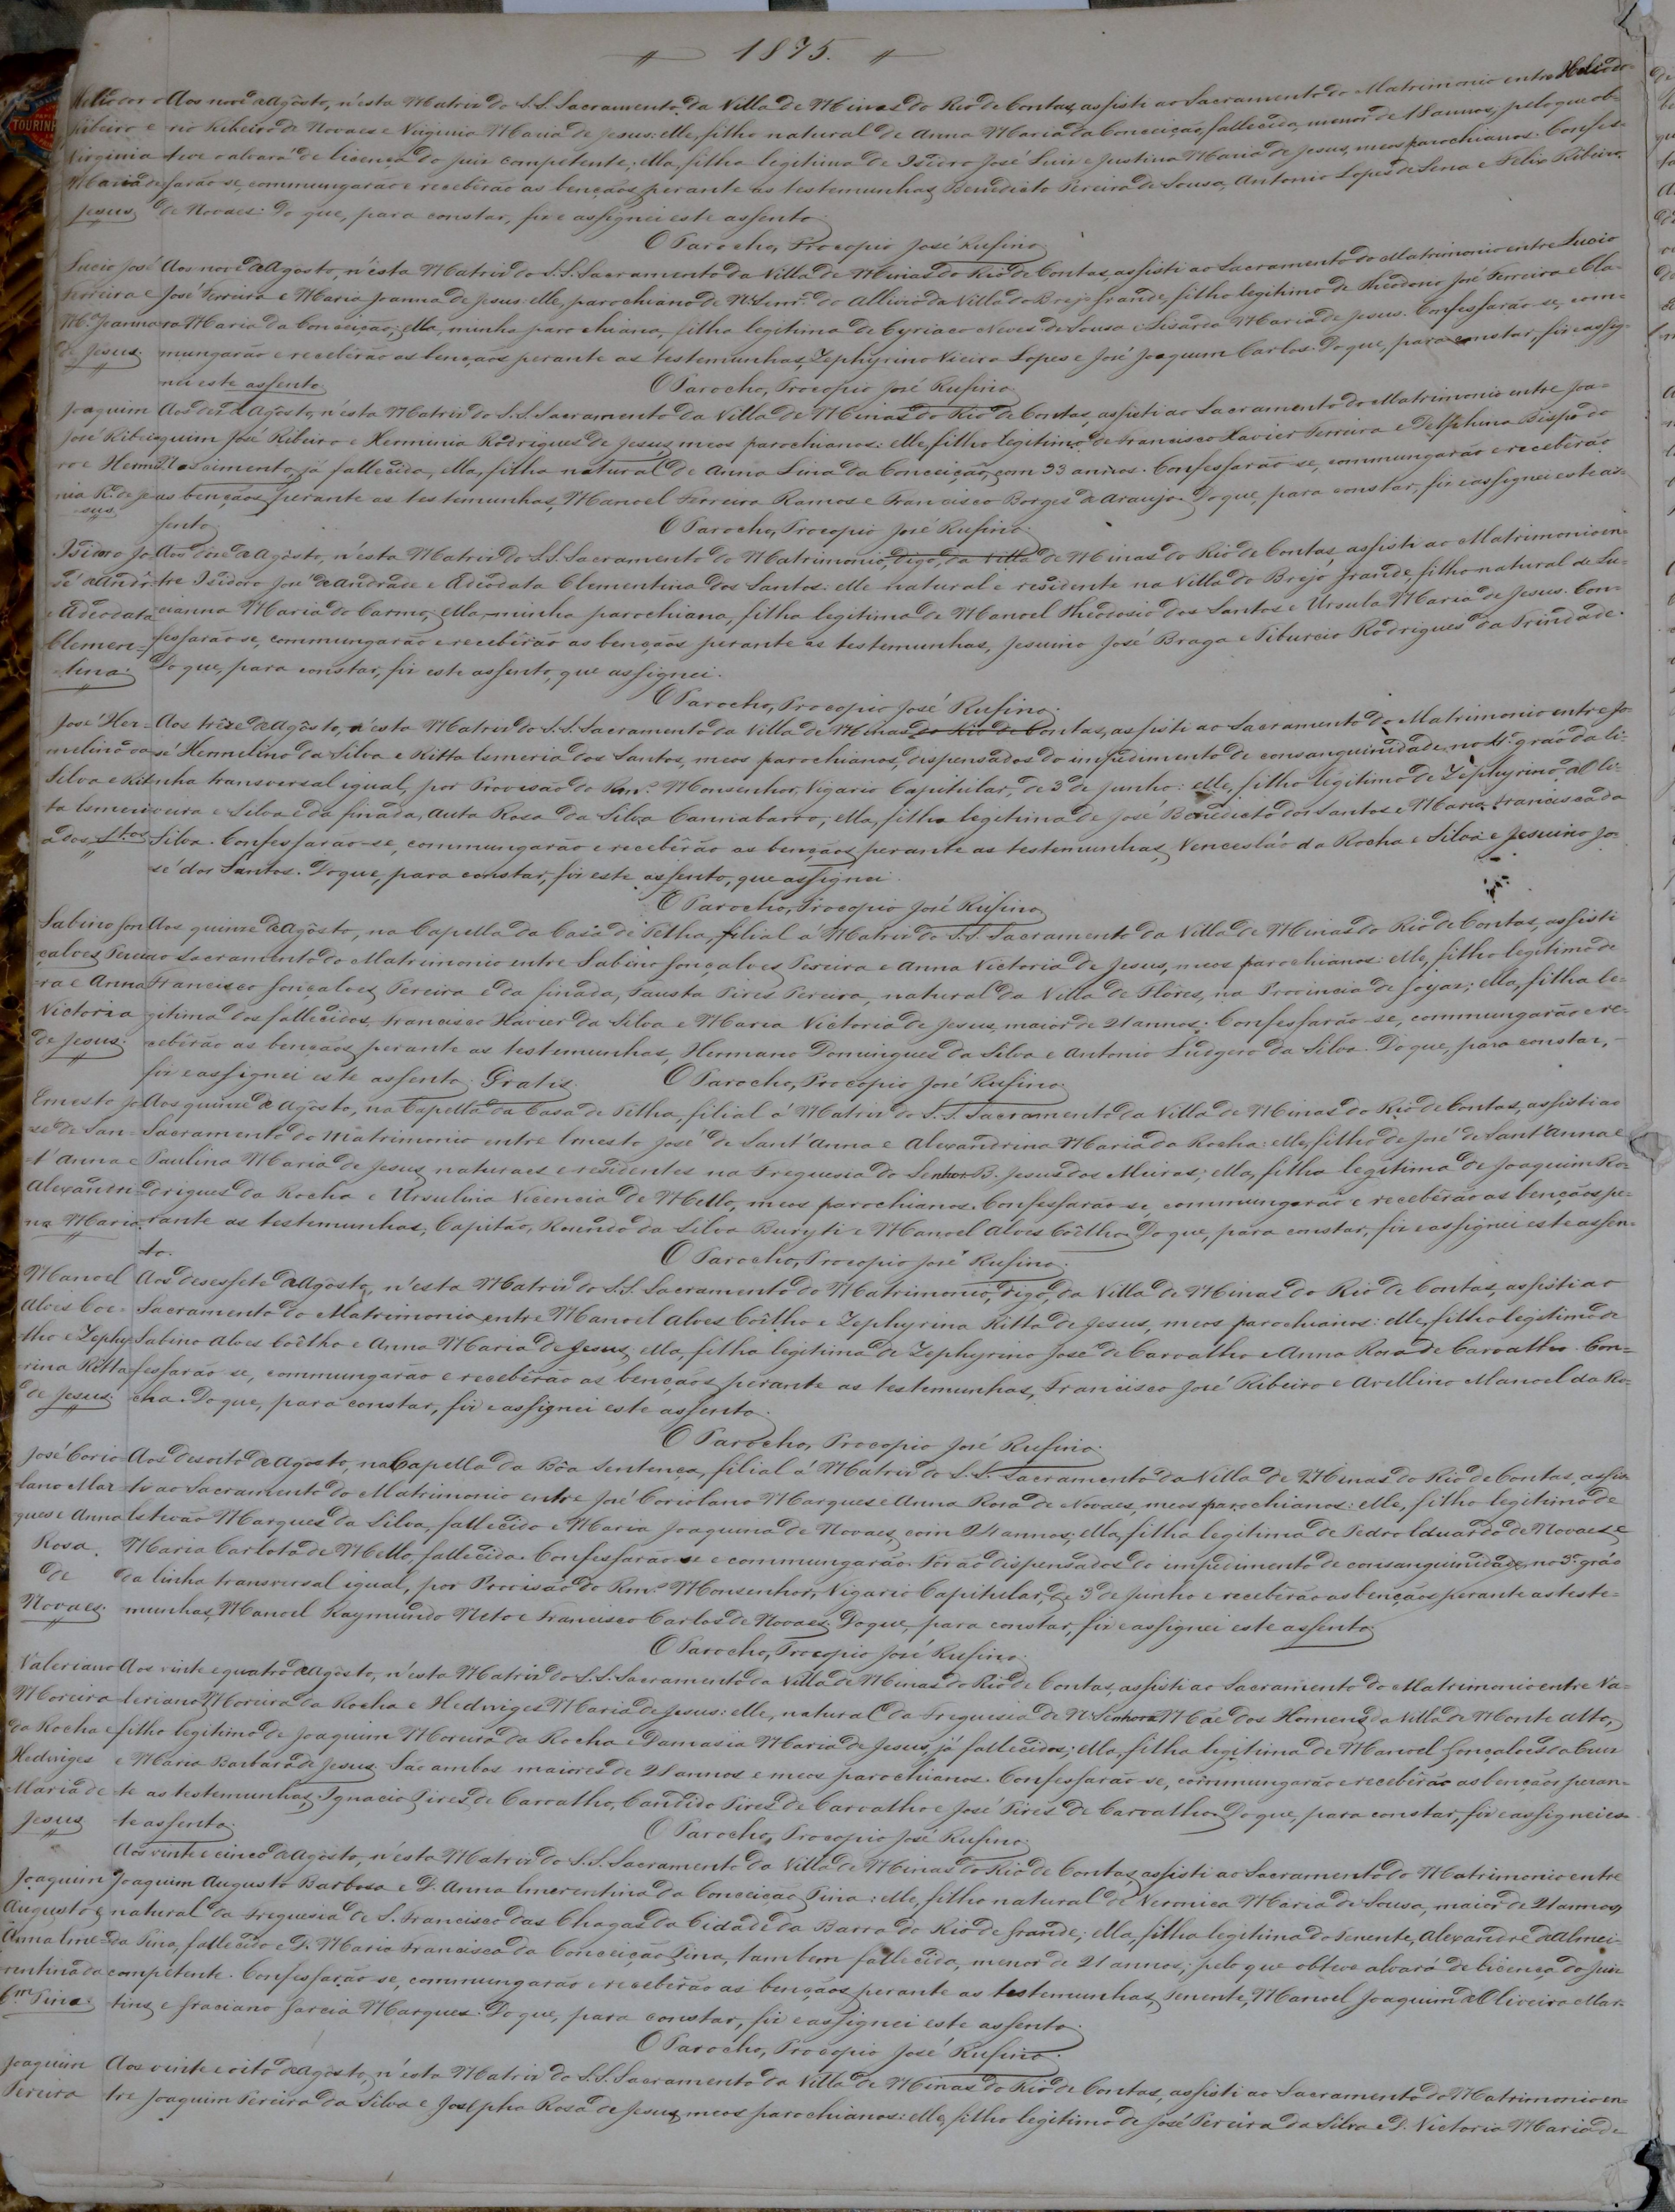 1875.
Heliodoro Aos nove de Agôsto, n'esta Matriz do S.S. Sacramento da Villa de Minas do Rio de Contas, assisti ao Sacramento do Matrimonio entre Heliodo-
Ribeiro e rio Ribeiro de Novaes e Virginia Maria de Jesus: elle, filho natural de Anna Maria da Conceição, fallecida, menor de 18 annos, pelo que ob-
Virginia teve o alvará de licença do juiz competente; ella, filha legitima de Isidro José Luiz e Justina Maria de Jesus, meos parochianos. Confes-
Maria de sarão-se, commungarão e recebêrão as bençaõs perante as testemunhas, Benedicto Pereira de Sousa, Antonio Lopes de Sena e Felix Ribeiro
Jesus de Novaes. Do que, para constar, fiz e assignei este assento.
O Parocho, Procopio José Rufino.
Lucio José Aos nove de Agôsto, n'esta Matriz do S.S. Sacramento da Villa de Minas do Rio de Contas, assisti ao Sacramento do Matrimonio entre Lucio
Ferreira e José Ferreira e Maria Joanna de Jesus: elle, parochiano de N. Senrª. do Allivio da Villa do Brejo Grande, filho legitimo de Theodoro José Ferreira e Cla-
Mª. Joanna ra Maria da Conceição; ella, minha parochiana, filha legitima de Cyriaco Neves de Sousa e Lisarda Maria de Jesus. Confessarão-se, com-
de Jesus. mungarão e recebêrão as bençaõs perante as testemunhas, Zephyrino Vieira Lopes e José Joaquim Carlos. Do que, para constar, fiz e assig-
nei este assento. O Parocho, Procopio José Rufino.
Joaquim Aos dez de Agôsto, n'esta Matriz do S.S. Sacramento da Villa de Minas do Rio de Contas, assisti ao Sacramento do Matrimonio entre Joa-
José Ribei- quim José Ribeiro e Herminia Rodrigues de Jesus, meos parochianos: elle, filho legitimo de Francisco Xavier Ferreira e Delphina Bispo do
ro e Hermi- Nascimento, já fallecida, ella, filha natural de Anna Lina da Conceição, com 33 annos. Confessarão-se, commungarão e recebêrão
nia Rª. de Je- as bençaõs perante as testemunhas, Manoel Ferreira Ramos e Francisco Borges de Araujo. Do que, para constar, fiz e assignei este as-
sus sento. O Parocho, Procopio José Rufino.
Isidoro Jo- Aos dose de Agôsto, n'esta Matriz do S.S. Sacramento do Matrimonio, digo, da Villa de Minas do Rio de Contas, assisti ao Matrimonio en-
sé de Andre tre Isidoro José de Andrade e Adeodata Clementina dos Santos: elle natural e residente na Villa do Brejo Grande, filho natural de Lu-
e Adeodata cianna Maria do Carmo; ella, minha parochiana, filha legitima de Manoel Theodosio dos Santos e Ursula Maria de Jesus. Con-
Clemen- fessarão-se, commungarão e recebêrão as bençaõs perante as testemunhas, Jesuino José Braga e Tiburcio Rodrigues da Trindade.
tina. Do que, para constar, fiz este assento, que assignei.
O Parocho, Procopio José Rufino.
José Her- Aos trêze de Agôsto, n'esta Matriz do S.S. Sacramento da Villa de Minas do Rio de Contas, assisti ao Sacramento do Matrimonio entre Jo-
melino da sé Hermelino da Silva e Ritta Ismeria dos Santos, meos parochianos, dispensados do impedimento de consanguinidade no 4º. gráo da li-
Silva e Rit- nha transversal igual, por Provisão do Rmº. Monsenhor, Vigario Capitular, de 3 de Junho: elle, filho legitimo de Zephyrino de Oli-
ta Ismeri- veira e Silva e da finada, Auta Rosa da Silva Cannabarro; ella, filha legitima de José Benedicto dos Santos e Maria Francisca da
a dos Stos. Silva. Confessarão-se, commungarão e recebêrão as bençaõs perante as testemunhas, Venceslão da Rocha e Silva e Jesuino Jo-
sé dos Santos. Do que, para constar, fiz este assento, que assignei.
O Parocho, Procopio José Rufino.
Sabino Gon- Aos quinze de Agôsto, na Capella da Casa de Telha, filial á Matriz do S.S. Sacramento da Villa de Minas do Rio de Contas, assisti
çalves Perei- ao Sacramento do Matrimonio entre Sabino Gonçalves Pereira e Anna Victoria de Jesus, meos parochianos: elle, filho legitimo de
ra e Anna Francisco Gonçalves Pereira e da finada, Fausta Pires Pereira, natural da Villa de Flôres, na Provincia de Goyaz; ella, filha le-
Victoria gitima dos fallecidos, Francisco Xavier da Silva e Maria Victoria de Jesus, maior de 21 annos. Confessarão-se, commungarão e re-
de Jesus. cebêrão as bençaõs perante as testemunhas, Hermano Domingues da Silva e Antonio Ludgero da Silva. Do que, para constar,
fiz e assignei este assento. Gratis. O Parocho, Procopio José Rufino.
Ernesto Jo- Aos quinze de Agôsto, na Capella da Casa de Telha, filial á Matriz do S.S. Sacramento da Villa de Minas do Rio de Contas, assisti ao
sé de San- Sacramento do Matrimonio entre Ernesto José de Sant'Anna e Alexandrina Maria da Rocha: elle, filho de José de Sant'Anna e
t'Anna e Paulina Maria de Jesus, naturaes e residentes na Freguesia do Senhor B. Jesus dos Meiras; ella, filha legitima de Joaquim Ro-
Alexandri- drigues da Rocha e Ursulina Vicencia de Mello, meos parochianos. Confessarão-se, commungarão e recebêrão as bençaõs pe-
na Maria rante as testemunhas, Capitão, Rotundo da Silva Buryti e Manoel Alves Coêlho. Do que, para constar, fiz e assignei este assen-
to. O Parocho, Procopio José Rufino.
Manoel Aos desessete de Agôsto, n'esta Matriz do S.S. Sacramento do Matrimonio, digo, da Villa de Minas do Rio de Contas, assisti ao
Alves Coe- Sacramento do Matrimonio entre Manoel Alves Coêlho e Zephyrina Ritta de Jesus, meos parochianos: elle, filho legitimo de
lho e Zephy- Sabino Alves Coêlho e Anna Maria de Jesus, ella, filha legitima de Zephyrino José de Carvalho e Anna Rosa de Carvalho. Con-
rina Ritta fessarão-se, commungarão e recebêrão as bençaõs perante as testemunhas, Francisco José Ribeiro e Avellino Manoel da Ro-
de Jesus. cha. Do que, para constar, fiz e assignei este assento.
O Parocho, Procopio José Rufino.
José Corio- Aos desoito de Agôsto, na Capella da Bôa Sentença, filial á Matriz do S.S. Sacramento da Villa de Minas do Rio de Contas, assis-
lano Mar- ti ao Sacramento do Matrimonio entre José Coriolano Marques e Anna Rosa de Novaes, meos parochianos: elle, filho legitimo de
ques e Anna Estevão Marques da Silva, fallecido e Maria Joaquina de Novaes, com 24 annos; ella, filha legitima de Pedro Eduardo de Novaes e
Rosa Maria Carlota de Mello, fallecida. Confessarão-se e commungarão. Forão dispensados do impedimento de consanguinidade no 3º. gráo
de da linha transversal igual, por Provisão do Rmº. Monsenhor, Vigario Capitular, de 3 de Junho e recebêrão as bençaõs perante as teste-
Novaes. munhas, Manoel Raymundo Neto e Francisco Carlos de Novaes. Do que, para constar, fiz e assignei este assento.
O Parocho, Procopio José Rufino.
Valeriano Aos vinte e quatro de Agôsto, n'esta Matriz do S.S. Sacramento da Villa de Minas do Rio de Contas, assisti ao Sacramento do Matrimonio entre Va-
Moreira leriano Moreira da Rocha e Hedwiges Maria de Jesus: elle, natural da Freguesia de N. Senhora Mãe dos Homens da Villa de Monte Alto,
da Rocha e filho legitimo de Joaquim Moreira da Rocha e Damasia Maria de Jesus, já fallecidos; ella, filha legitima de Manoel Gonçalves da Cruz
Hedwiges e Maria Barbara de Jesus. São ambos maiores de 21 annos e meos parochianos. Confessarão-se, commungarão e recebêrão as bençaõs peran-
Maria de te as testemunhas, Ignacio Pires de Carvalho, Candido Pires de Carvalho e José Pires de Carvalho. Do que, para constar, fiz e assignei es-
Jesus te assento. O Parocho, Procopio José Rufino.
Aos vinte e cinco de Agôsto, n'esta Matriz do S.S. Sacramento da Villa de Minas do Rio de Contas, assisti ao Sacramento do Matrimonio entre
Joaquim Joaquim Augusto Barbosa e D. Anna Emerentina da Conceição Pina: elle, filho natural de Veronica Maria de Sousa, maior de 21 annos,
Augusto e natural da Freguesia de S. Francisco das Chagas da Cidade da Barra do Rio de Grande; ella, filha legitima do Tenente, Alexandre de Almei-
Anna Eme- da Pina, fallecido e D. Maria Francisca da Conceição Pina, tambem fallecida, menor de 21 annos, pelo que obteve alvará de licença do Juiz
rentina da competente. Confessarão-se, commungarão e recebêrão as bençaõs perante as testemunhas, Tenente, Manoel Joaquim de Oliveira Mar-
Cm. Pina. tins e Graciano Garcia Marques. Do que, para constar, fiz e assignei este assento.
O Parocho, Procopio José Rufino.
Joaquim Aos vinte e oito de Agôsto, n'esta Matriz do S.S. Sacramento da Villa de Minas do Rio de Contas, assisti ao Sacramento do Matrimonio en-
Pereira tre Joaquim Pereira da Silva e Josepha Rosa de Jesus, meos parochianos: elle, filho legitimo de José Pereira da Silva e D. Victoria Maria de